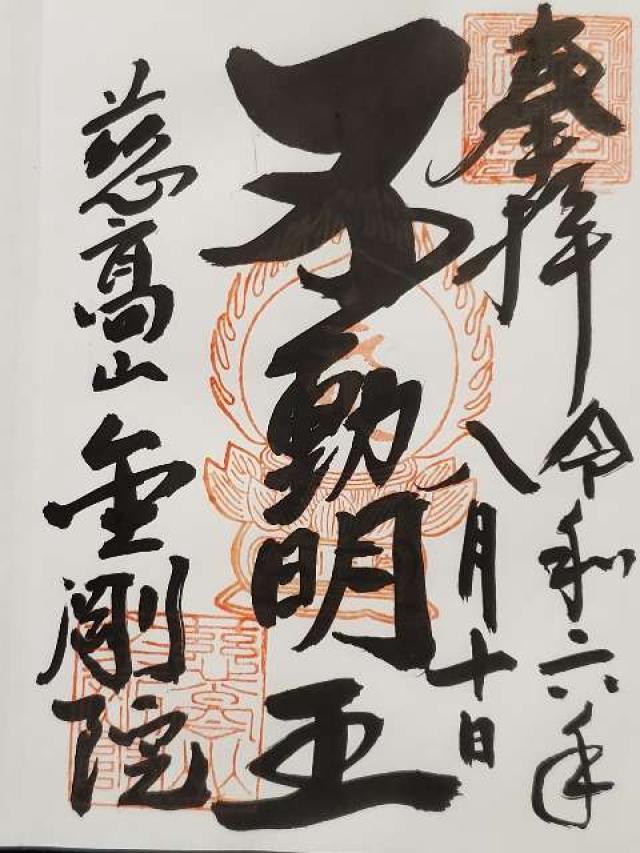 奉拝 令和六年
八月十日
不動明王
慈高山 金剛院